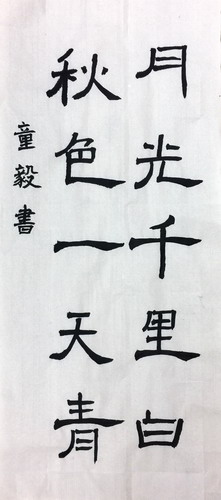 月光千里白
秋色一天青
童毅書